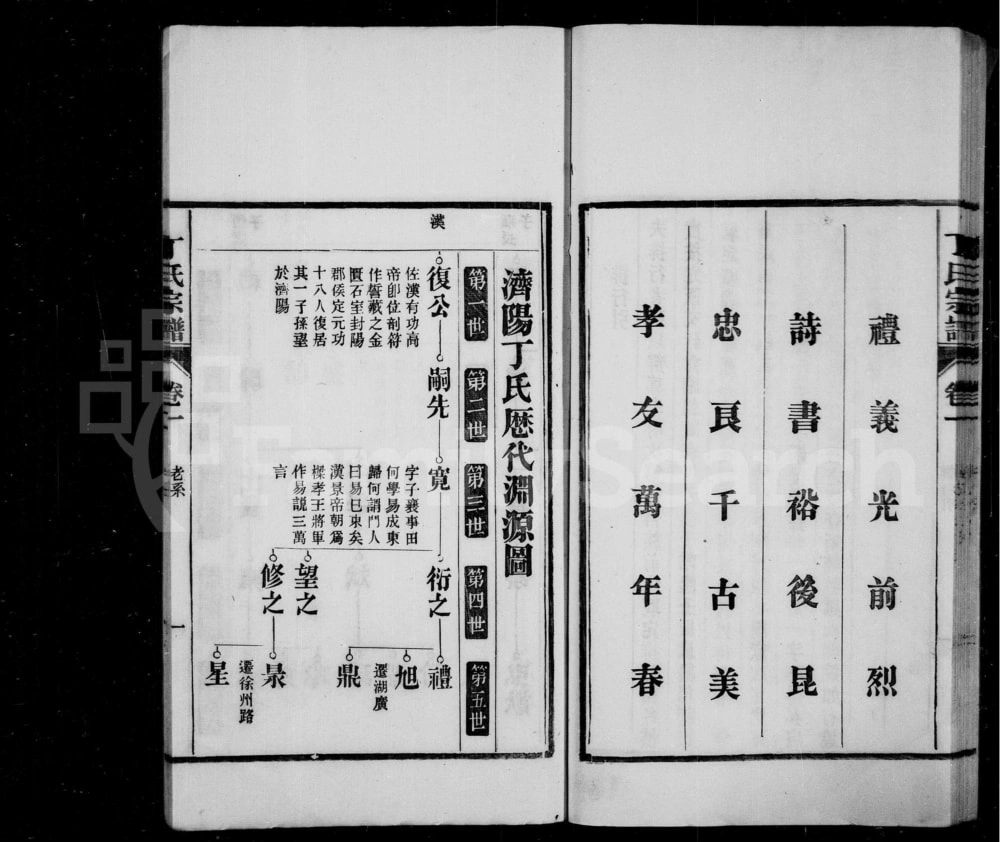 禮義光前烈
詩書裕後昆
忠良千古美
孝友萬年春
丁氏宗譜
卷一
濟陽丁氏歷代淵源圖
第一世
第二世
第三世
第四世
第五世
漢
復公
嗣先
寬
衍之
禮
佐漢有功高
帝卽位剖符
作誓藏之金
匱石室封陽
郡侯定元功
十八人復居
其一子孫望
於濟陽
字子襄事田
何學易成東
歸何謂門人
曰易已東矣
漢景帝朝爲
樑孝王將軍
作易説三萬
言
旭
遷湖廣
鼎
望之
修之
杲
遷徐州路
星
丁氏宗譜
卷一
老系
一
FamilySearch